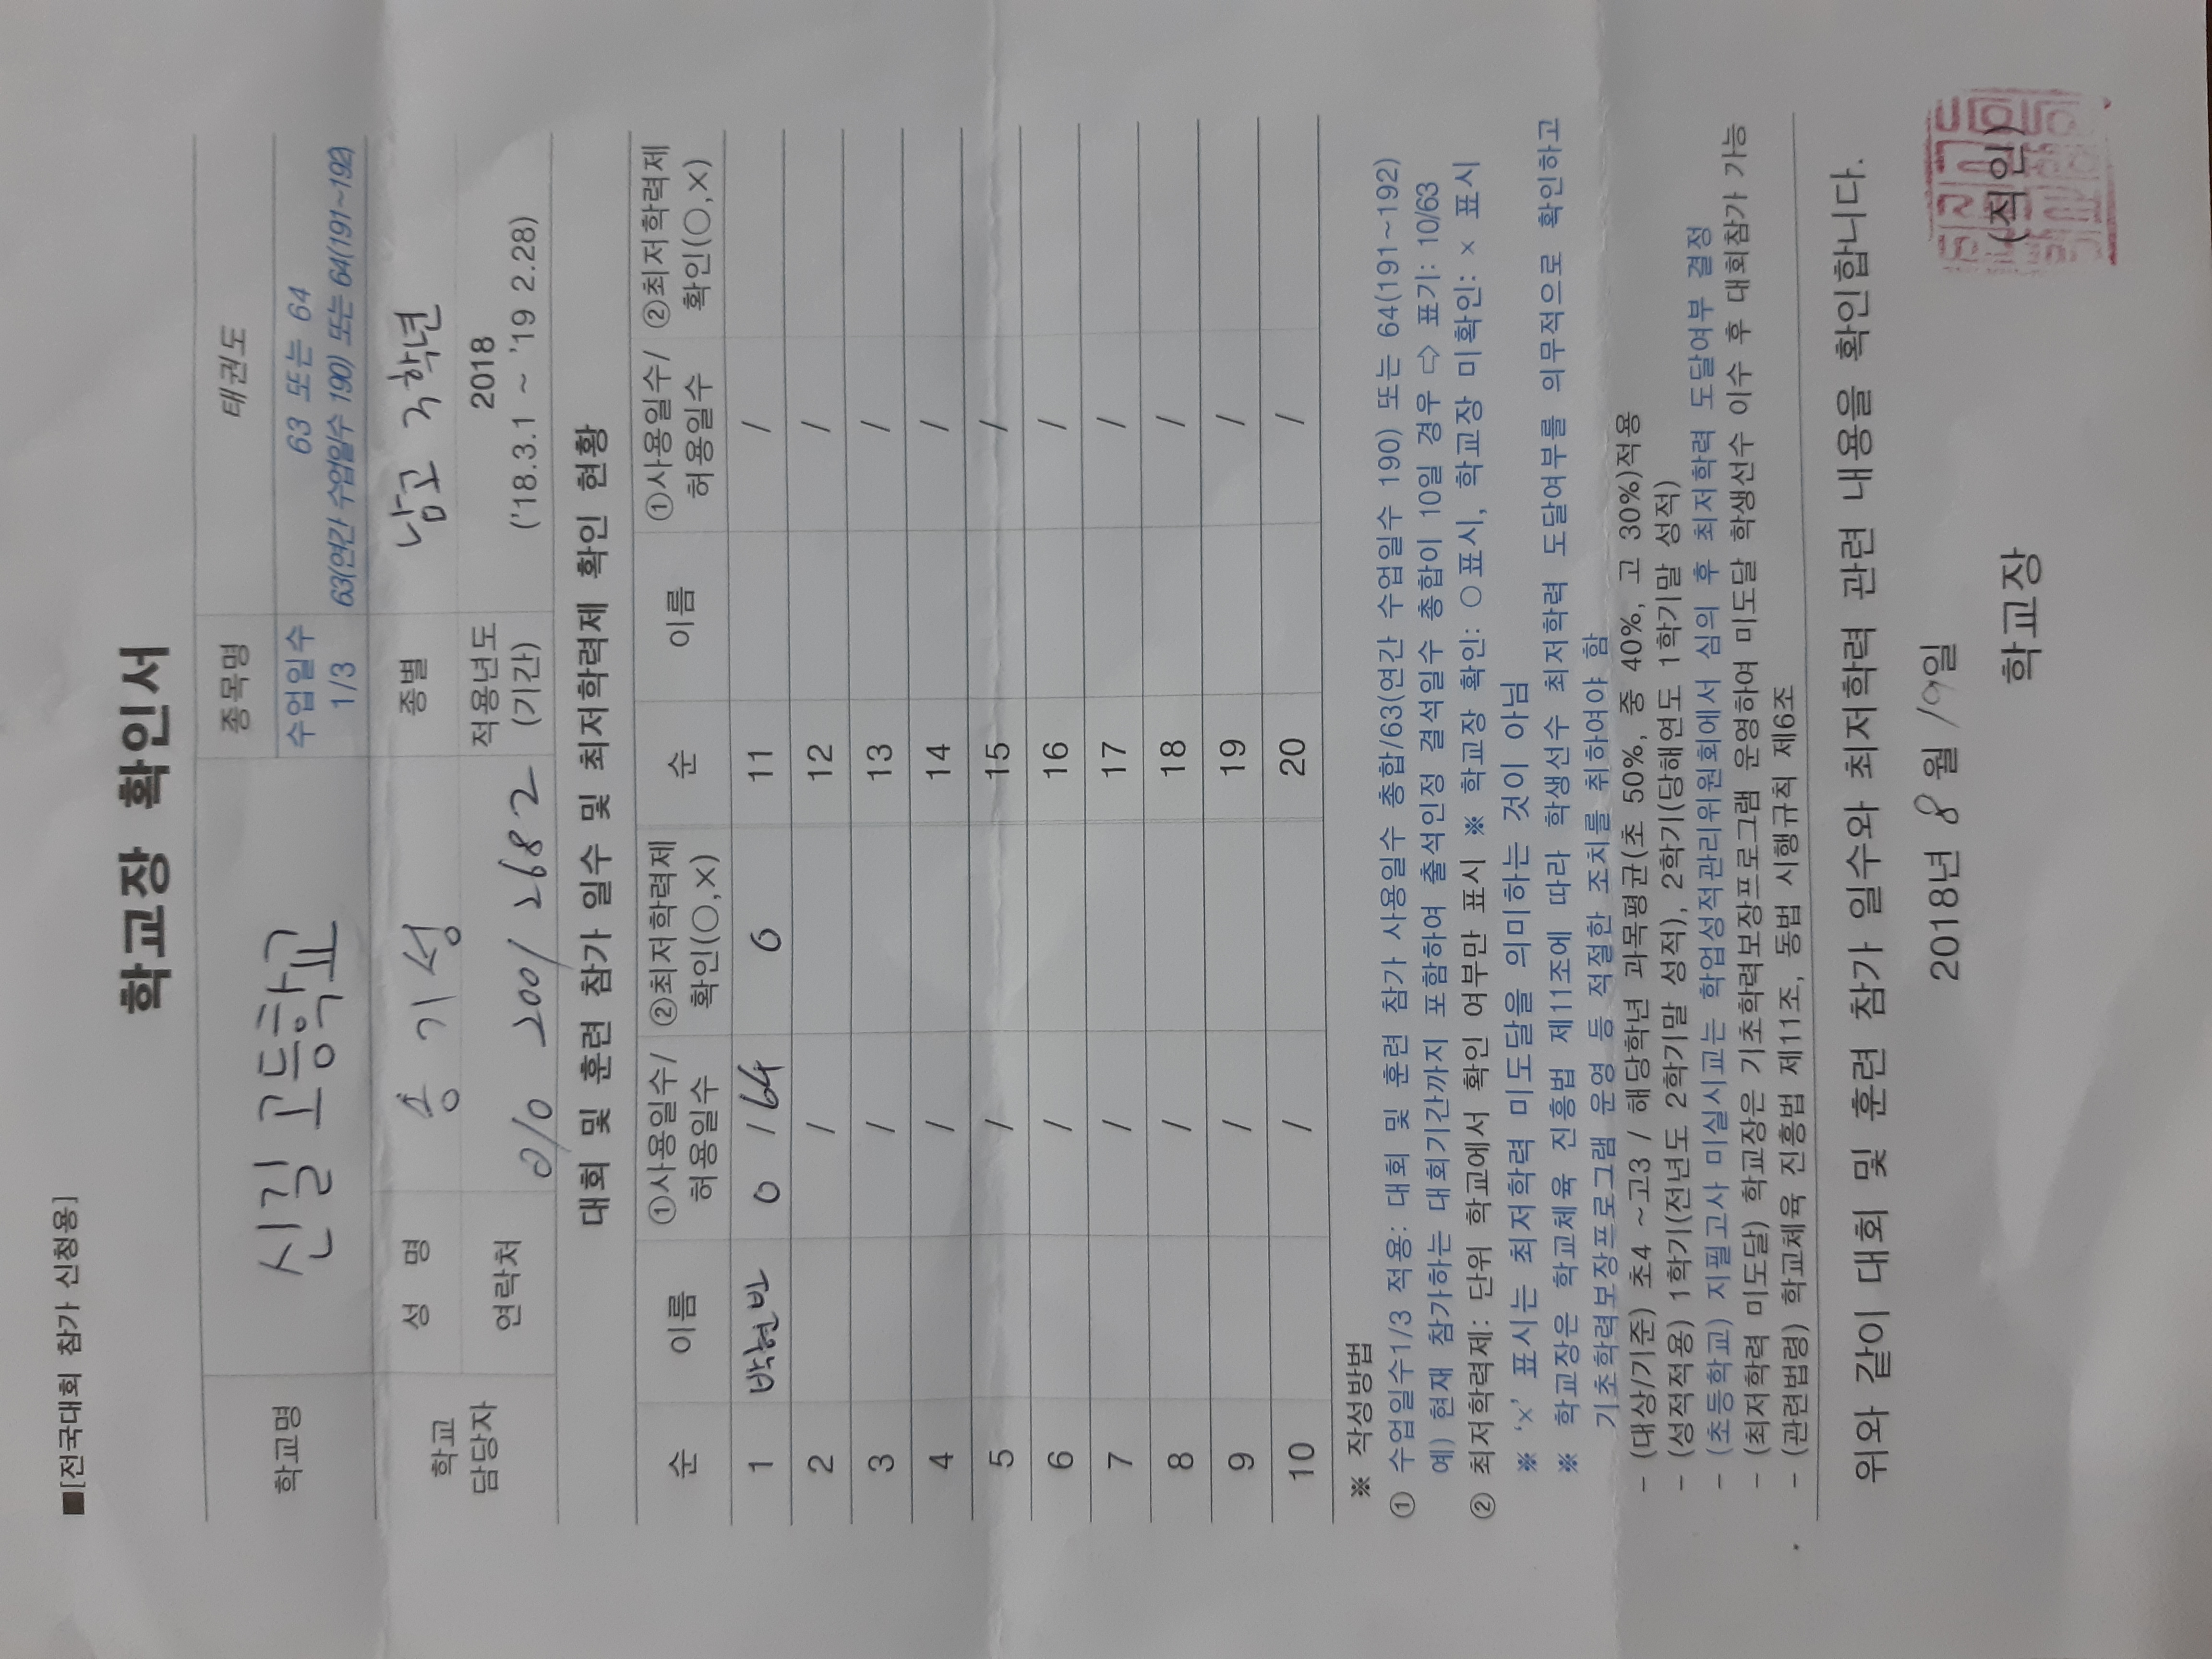 ■[전국대회 참가 신청용]
학교장 확인서
학교명 신길고등학교 종목명 태권도
수업일수 1/3 63 또는 64
63(연간 수업일수 190) 또는 64(191~192)
학교 담당자 성 명 송기성 종별 남고 3학년
연락처 010 2001 2682 적용년도 (기간) 2018
('18.3.1 ~ '19 2.28)
대회 및 훈련 참가 일수 및 최저학력제 확인 현황
순 이름 ①사용일수/허용일수 ②최저학력제 확인(○,×) 순 이름 ①사용일수/허용일수 ②최저학력제 확인(○,×)
1 박현빈 0 / 64 0 11 /
2 / 12 /
3 / 13 /
4 / 14 /
5 / 15 /
6 / 16 /
7 / 17 /
8 / 18 /
9 / 19 /
10 / 20 /
※ 작성방법
① 수업일수1/3 적용: 대회 및 훈련 참가 사용일수 총합/63(연간 수업일수 190) 또는 64(191~192)
예) 현재 참가하는 대회기간까지 포함하여 출석인정 결석일수 총합이 10일 경우 ⇨ 표기: 10/63
② 최저학력제: 단위 학교에서 확인 여부만 표시 ※ 학교장 확인: ○표시, 학교장 미확인: × 표시
※ '×' 표시는 최저학력 미도달을 의미하는 것이 아님
※ 학교장은 학교체육 진흥법 제11조에 따라 학생선수 최저학력 도달여부를 의무적으로 확인하고
기초학력보장프로그램 운영 등 적절한 조치를 취하여야 함
- (대상/기준) 초4 ~고3 / 해당학년 과목평균(초 50%, 중 40%, 고 30%)적용
- (성적적용) 1학기(전년도 2학기말 성적), 2학기(당해연도 1학기말 성적)
- (초등학교) 지필고사 미실시교는 학업성적관리위원회에서 심의 후 최저학력 도달여부 결정
- (최저학력 미도달) 학교장은 기초학력보장프로그램 운영하여 미도달 학생선수 이수 후 대회참가 가능
- (관련법령) 학교체육 진흥법 제11조, 동법 시행규칙 제6조
위와 같이 대회 및 훈련 참가 일수와 최저학력 관련 내용을 확인합니다.
2018년 8월 19일
학교장 (직인)